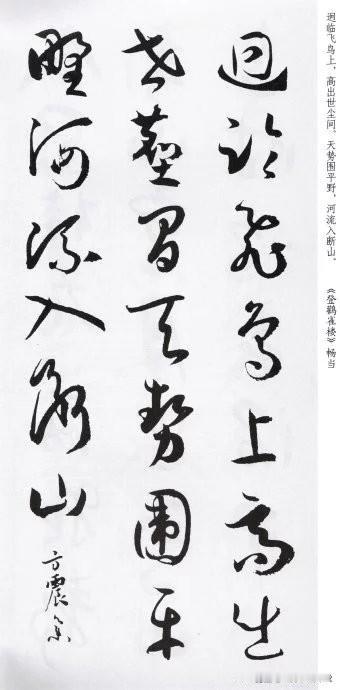 迥临飞鸟上，高出世尘间。天势围平野，河流入断山。
《登鹳雀楼》畅当
迥临飞鸟上高出
世尘间天势围平
野河流入断山
方震书